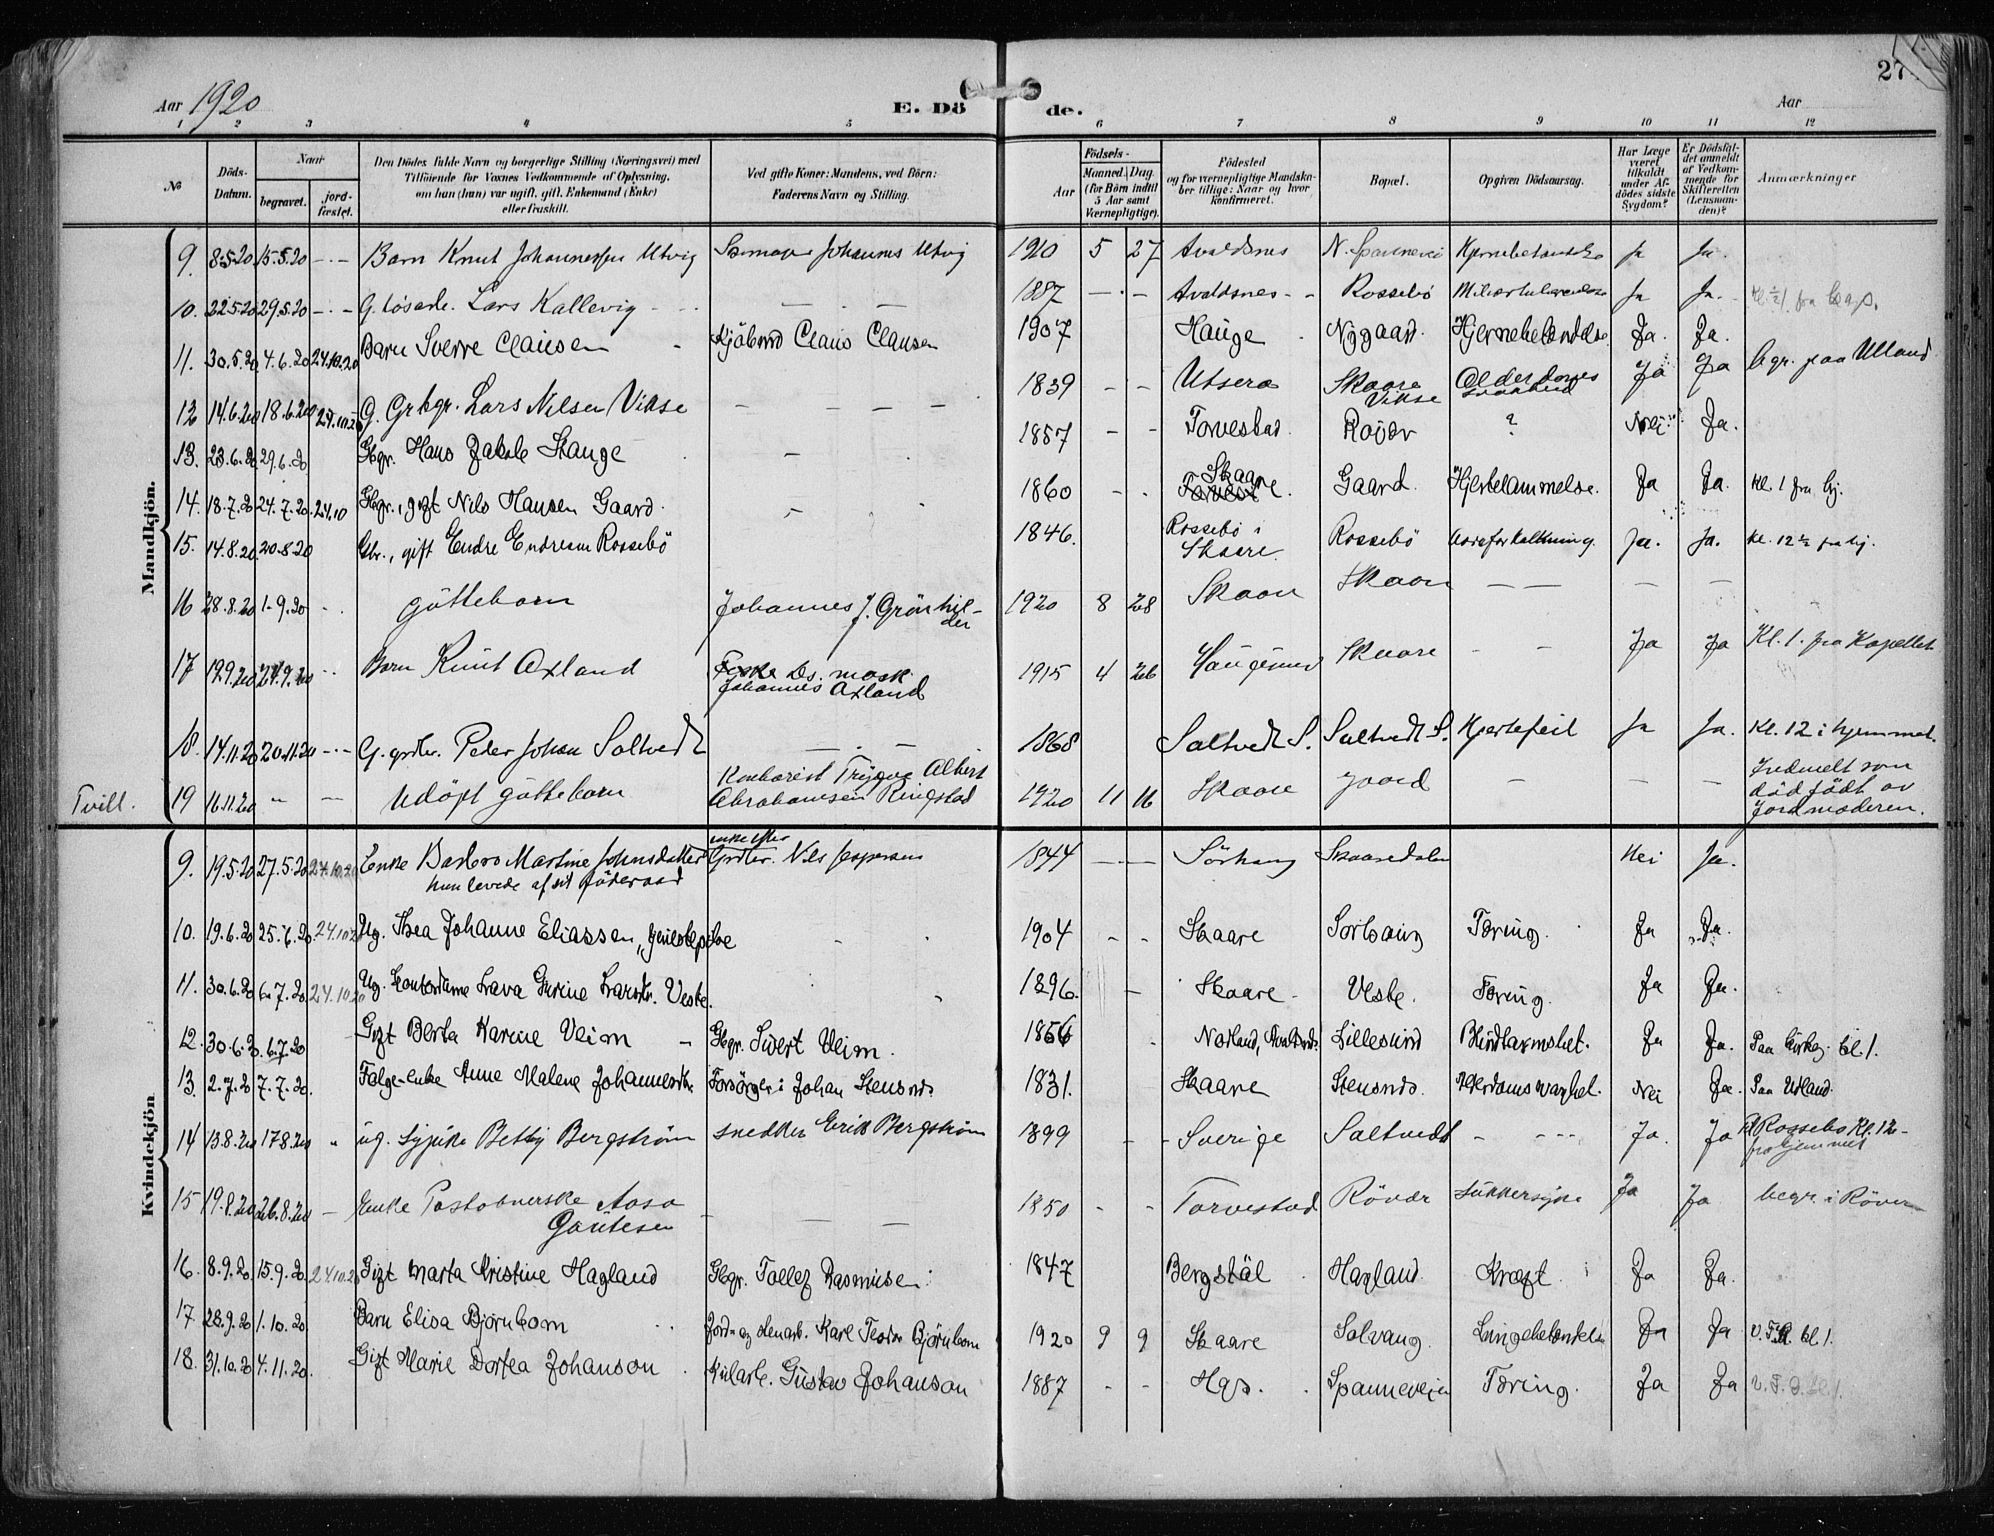 27
Aar 1920
E. Dö
de.
Aar
1 2 3 4 5 6 7 8 9 10 11 12
No
Döds-Datum.
Naar
begravet.
jord-fæstet.
Den Dödes fulde Navn og borgerlige Stilling (Næringsvei) med Tilföiende for Voxnes Vedkommende af Oplysning, om han (hun) var ugift, gift, Enkemand (Enke) eller fraskilt.
Ved gifte Koner: Mandens, ved Börn: Faderens Navn og Stilling.
Födsels-
Aar
Maaned. Dag. (for Börn indtil 5 Aar samt Værnepligtige).
Födested og for værnepligtige Mandskaber tillige: Naar og hvor konfirmeret.
Bopæl.
Opgiven Dödsaarsag.
Har Læge været tilkaldt under Afdödes sidste Sygdom?
Er Dödsfaldet anmeldt af Vedkommende for Skifteretten (Lensmanden)?
Anmærkninger
Mandkjön.
9. 8.5.20 15.5.20 — Barn Knut Johannessen Utvig Johannes Utvig 1910 5 27 Avaldsnes Ja Ja.
10. 22.5.20 29.5.20 — G. Lars Kallevig — 1887 — Avaldsnes Rossebö Ja Ja.
11. 30.5.20 4.6.20 24.10.20 Barn Sverre Clausen Claus Clausen 1907 Hauge Nygaard Hjernebetændelse Ja. Ja. begr. paa Utland
12 14.6.20 18.6.20 24.10.20 G. Grbgr. Lars Nilsen Vikse — 1839 — Utsera Skaare Vikse Alderdomssvakhed Ja Ja
13. 23.6.20 29.6.20 Gbgr. Hans Stange — 1857 — Torvestad Rövær ? Nei Ja.
14. 18.7.20 24.7.20 24.10 Gbgr., gift Nils Hansen Gaard. 1860 Skaare. Gaard. Hjertelammelse. Ja Ja. Kl. 1 fra hj.
15. 14.8.20 20.8.20 Gbr., gift Endre Endresen Rossebö 1846. Rossebö i Skaare Rossebö Aareforkalkning. Ja. Ja. Kl. 12½ fra hj.
16 28.8.20 1.9.20 guttebarn Johannes J. Grönhilder 1920 8 28 Skaare Skaare — —
17 19.9.20 24.9.20 Barn Knut Axland Johannes Axland 1915 4 26 Haugesund Skaare — Ja Ja Kl. 1. fra Kapellet
18. 14.11.20 20.11.20 — G. grdbr. Peder Johan Saltvedt — 1868 Saltvedt S. Saltvedt S. Hjertefeil Ja Ja. Kl. 12 i hjemmet.
Tvill. 19 16.11.20 — Udöpt guttebarn Kontorist Trygve Albert Abrahamsen Ringstad 1920 11 16 Skaare Gaard — Indmelt som död födt av Jordmoderen.
Kvindekjön
9. 19.5.20 27.5.20 24.10.20 Enke Barbro Martine Johnsdatter enke efter Grdbr. Nils Jespersen 1844 — Sörhaug Skaaredalen Nei Ja.
hun levede af sit föderaad
10. 19.6.20 25.6.20 24.10.20 Ug. Thea Johanne Eliassen, tjenestepike 1904 — Skaare Sörhaug Tæring. Ja Ja.
11. 30.6.20 6.7.20 24.10.20 Ug. Kontordame Lava Larsdtr. Veste. 1896. — Skaare Veste. Tæring. Ja Ja.
12. 30.6.20 6.7.20 Gift Berta Karine Veim Gbgr. Sivert Veim. 1856 Norland, Avaldsnes Lillesund Blindtarmsbet. Ja Ja. Paa kirkeg. kl. 1.
13. 2.7.20 7.7.20. Enke Anne Malene Johannesdtr. Forsörger: Johan Stensnes 1831. Skaare Stensnes. Alderdomssvaghet. Nei Ja. Paa Utland.
14 13.8.20 17.8.20 „ ug. sypike Betty Bergström snedker Erik Bergström 1899 — Sverige Saltvedt — Ja. Ja Rossebo Kl. 12 fra hjemmet
15 19.8.20 26.8.20 — Enke Postobnerske Aasa Gautesen — 1850 — Torvestad Rövær sukkersyke Ja Ja begr. i Rövær
16. 8.9.20. 15.9.20. 24.10.20 Gift Marta Kristine Hagland Gbgr. Tollef Rasmusen 1847 Hagland Kræft Ja Ja.
17. 28.9.20 1.10.20 Barn Elisa Björnbom Jord- og stenarb. Karl Teodor Björnbom 1920 9 9 Skaare Solvang. Lungebetændelse Ja Ja kl 1.
18. 31.10.20 4.11.20. Gift Marie Dortea Johanson Gustav Johanson 1887 — Hgs. Spanneveien Tæring. Ja Ja